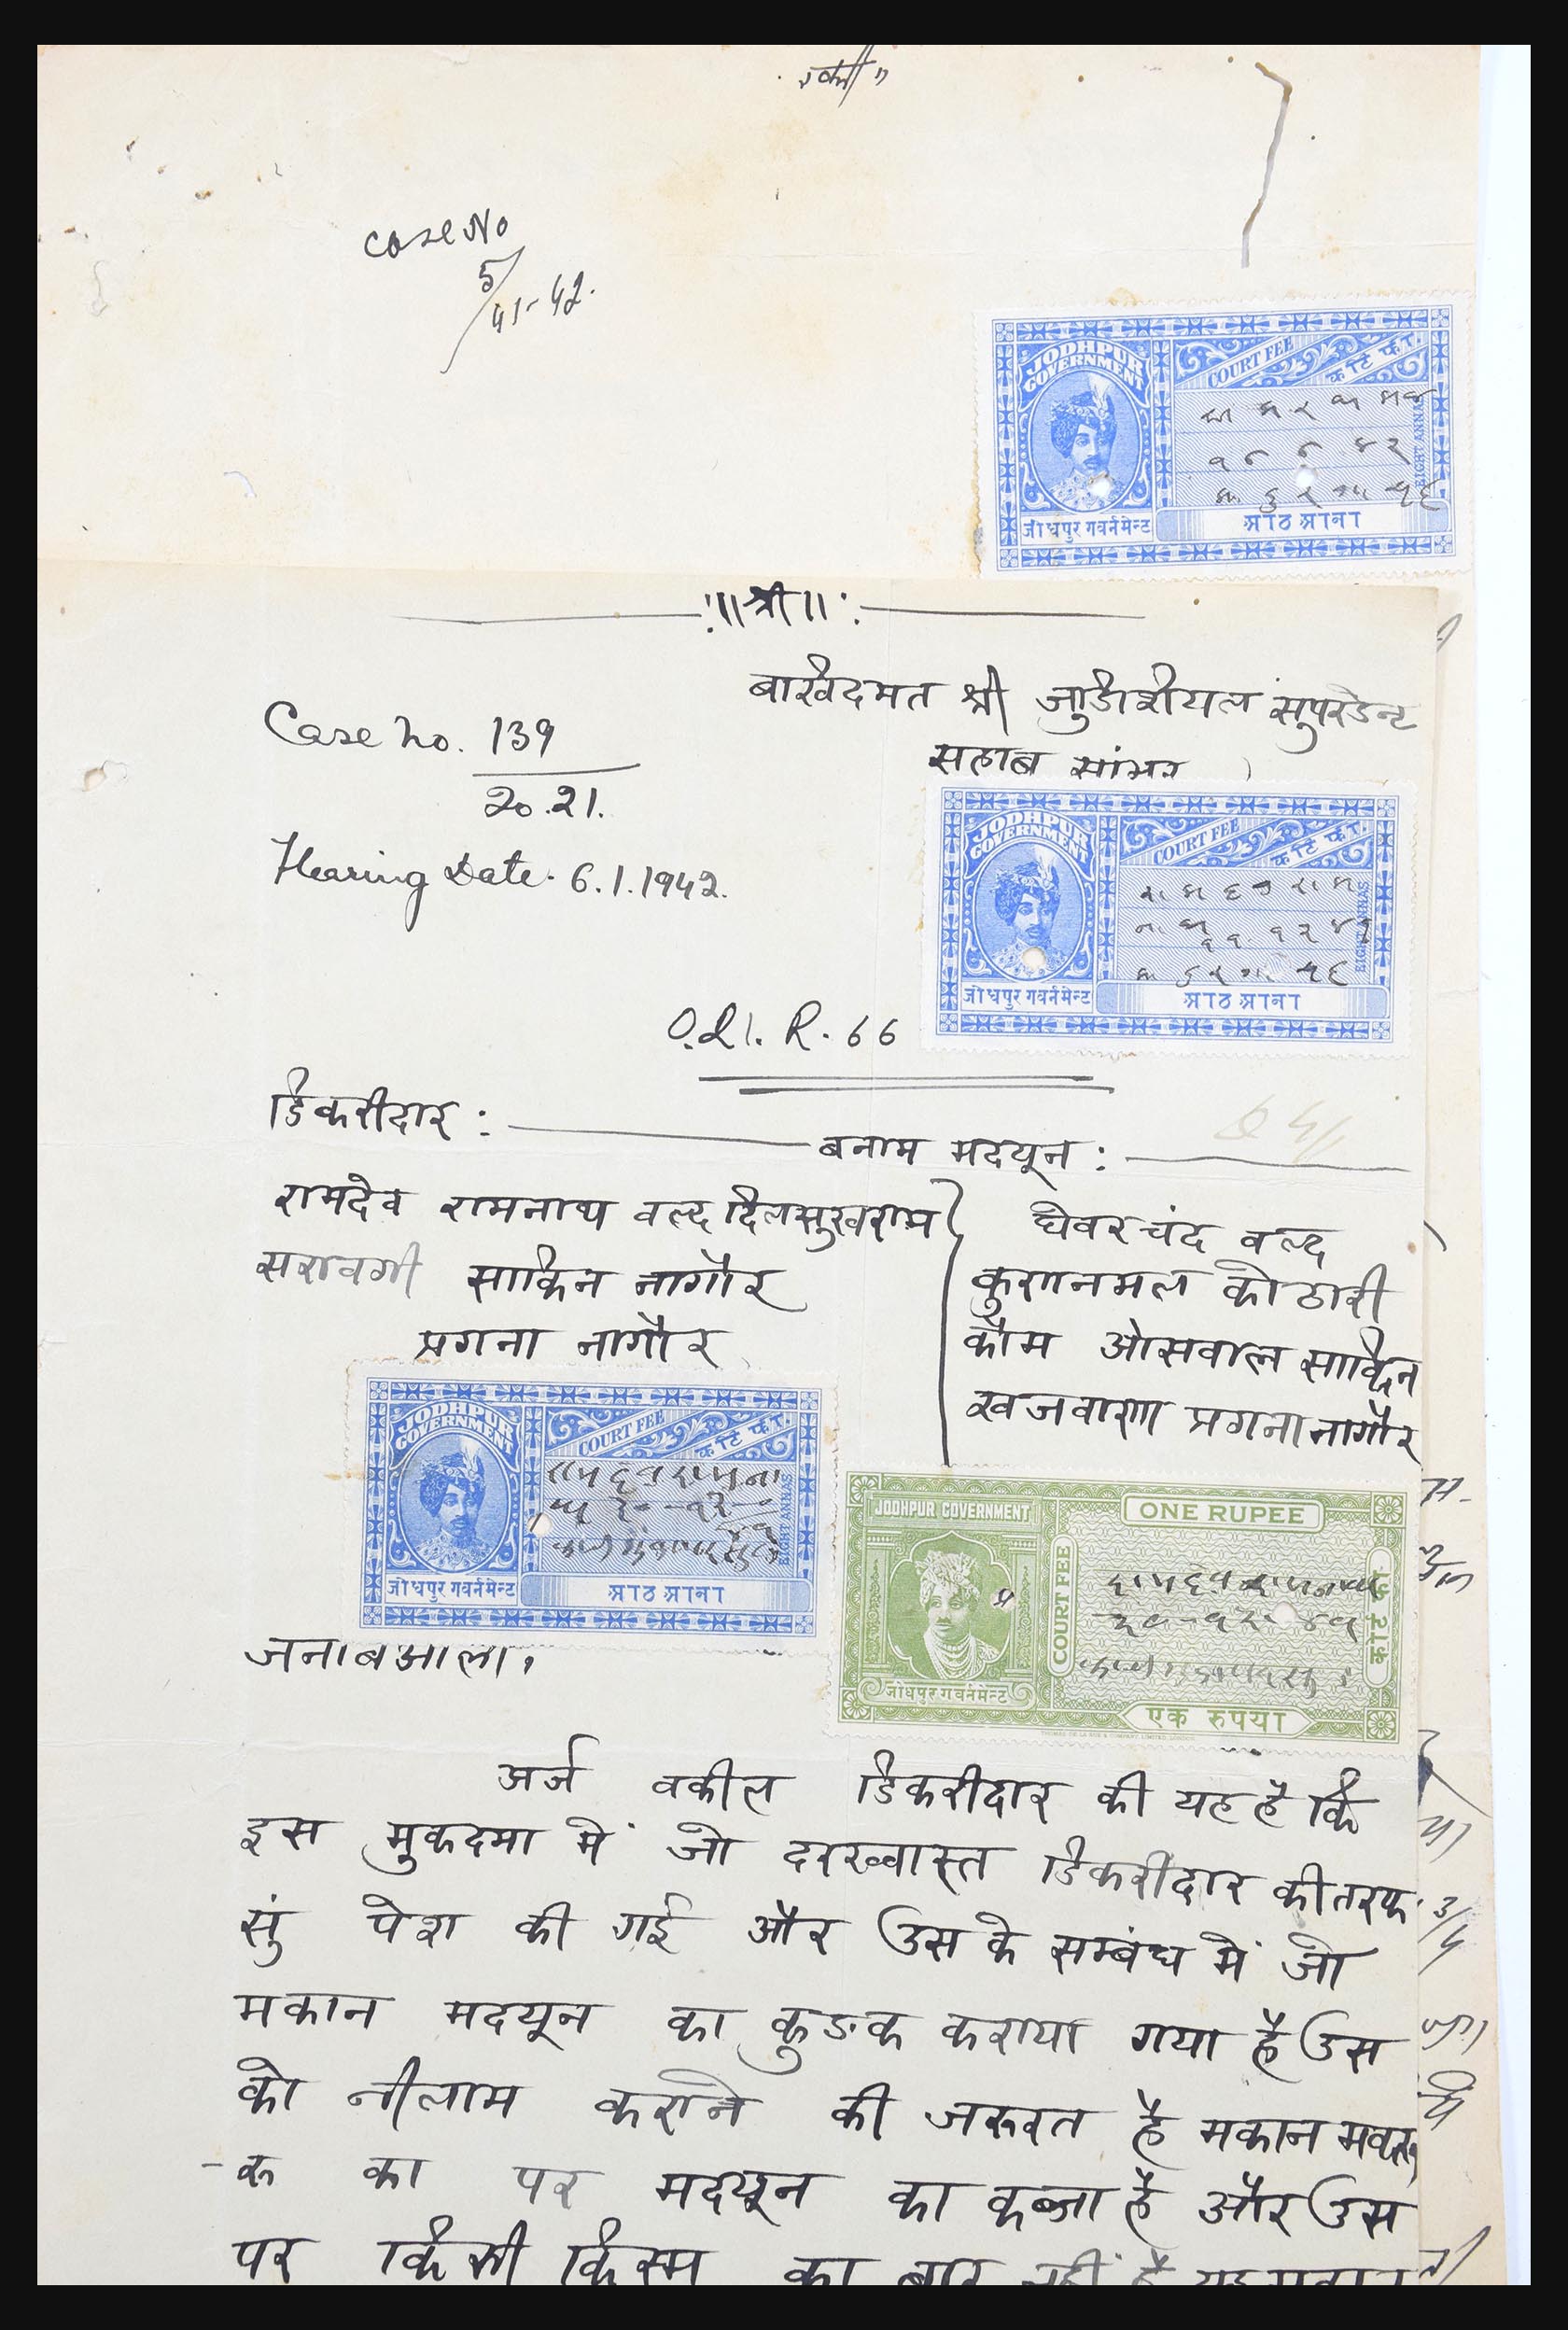 Case No
5/41-42.
JODHPUR GOVERNMENT
COURT FEE
कोर्ट फी.
EIGHT ANNAS
जोधपुर गवर्नमेन्ट
आठ आना
:॥श्री॥:
बाखिदमत श्री जुडीशीयल सुपरडेन्ट
सहाब सांभर
Case No. 139
20.21.
Hearing Date. 6.1.1942.
JODHPUR GOVERNMENT
COURT FEE
कोर्ट फी.
EIGHT ANNAS
जोधपुर गवर्नमेन्ट
आठ आना
O.21. R. 66
डिकरीदार :
बनाम मदयून :
रामदेव रामनाथ वल्द दिलसुखराम
सरावगी साकिन नागौर
प्रगना नागौर
घेवरचंद वल्द
कुशानमल कोठारी
कौम ओसवाल साकिन
खजवाणा प्रगना नागौर
JODHPUR GOVERNMENT
COURT FEE
कोर्ट फी.
EIGHT ANNAS
जोधपुर गवर्नमेन्ट
आठ आना
JODHPUR GOVERNMENT
ONE RUPEE
COURT FEE
कोर्ट फी
रामदेव रामनाथ
३०-१२-४१
जोधपुर गवर्नमेन्ट
एक रुपया
जनाबआला,
अर्ज वकील डिकरीदार की यह है कि
इस मुकदमा में जो दरख्वास्त डिकरीदार की तरफ
सुं पेश की गई और उस के सम्बंध में जो
मकान मदयून का कुङक कराया गया है उस
को नीलाम कराने की जरूरत है मकान
का पर मदयून का कब्जा है और उस
पर किसी किस्म का बार नहीं है